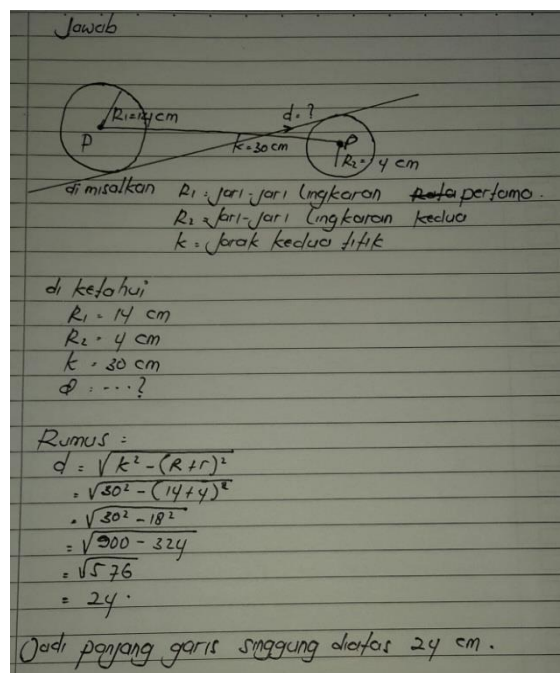 Jawab
R1=14 cm
d=?
P
k=30 cm
P
R2= 4 cm
di misalkan R1=jari-jari lingkaran pertama.
R2=jari-jari lingkaran kedua
k= jarak kedua titik
di ketahui
R1 = 14 cm
R2 = 4 cm
k = 30 cm
d : ....?
Rumus :
d = √k² - (R+r)²
= √30² - (14+4)²
= √30² - 18²
= √900 - 324
= √576
= 24.
Jadi panjang garis singgung diatas 24 cm.